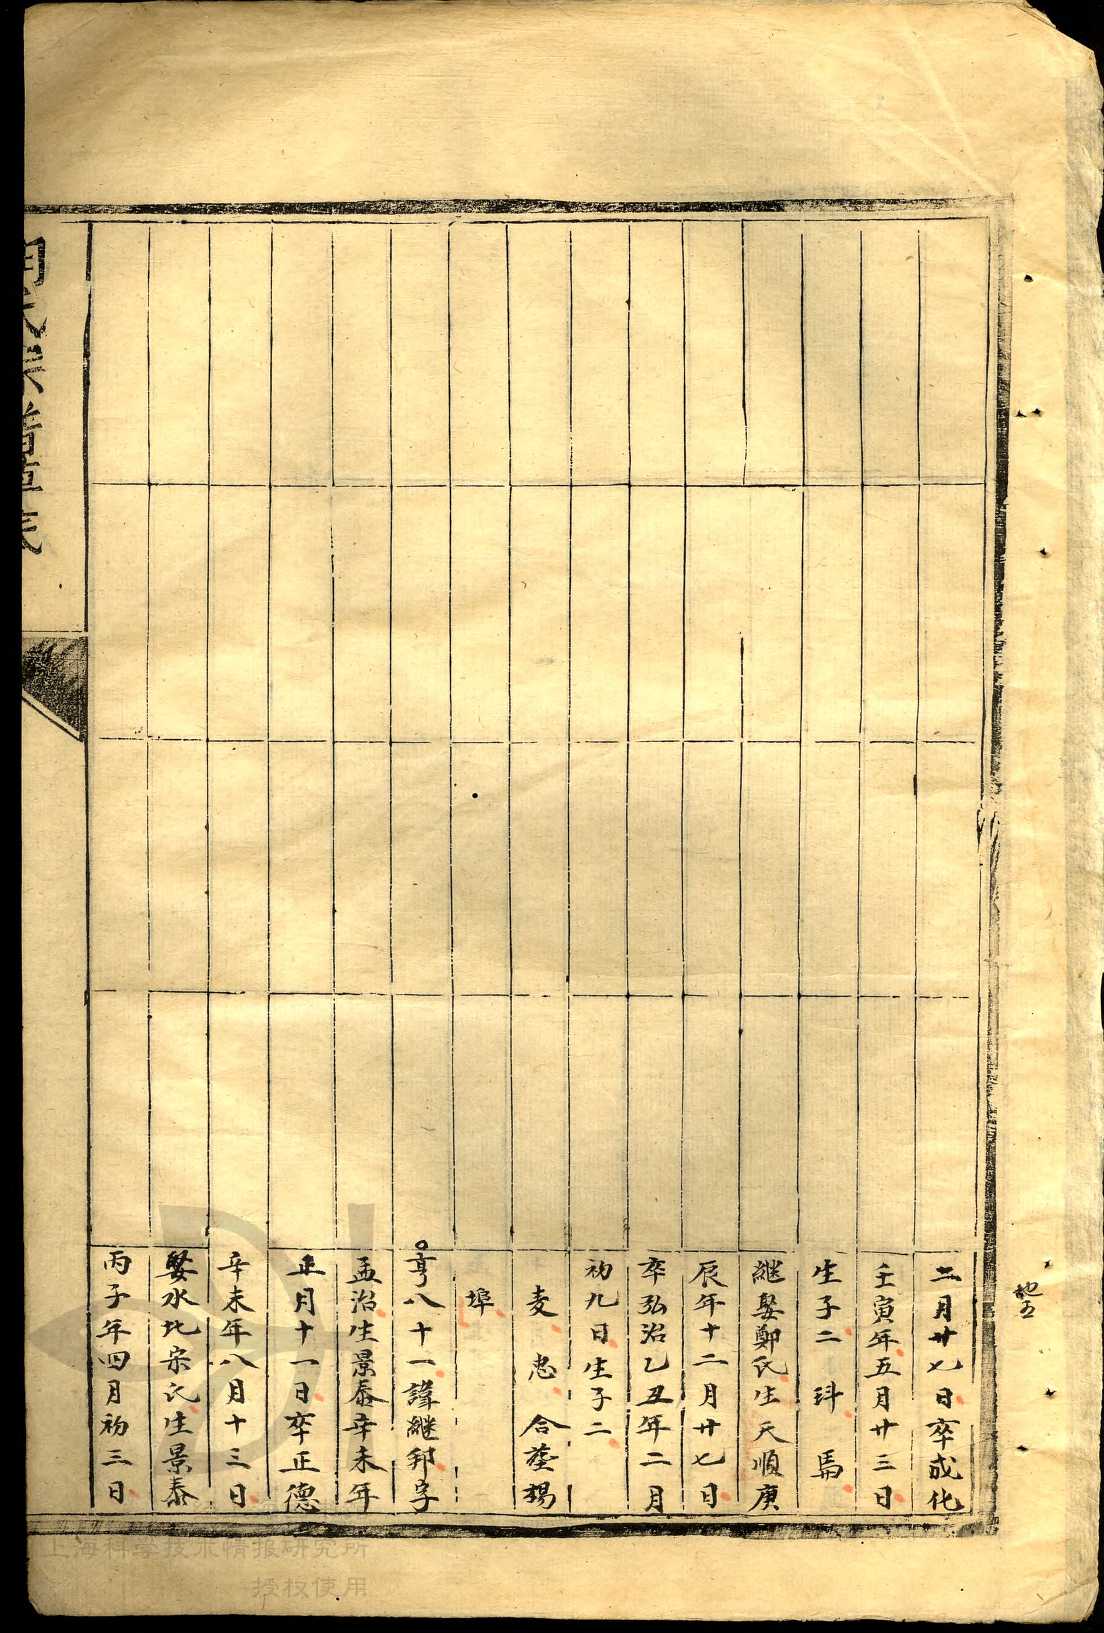 二月廿七日卒成化
壬寅年五月廿三日
生子二 科 禹
継娶鄭氏生天順庚
辰年十二月廿七日
卒弘治乙丑年二月
初九日生子二
麦 忠 合塟楊
埠
亨八十一諱継邦字
孟治生景泰辛未年
正月十一日卒正德
辛未年八月十三日
娶水北宗氏生景泰
丙子年四月初三日
上海科学技术情报研究所
授权使用